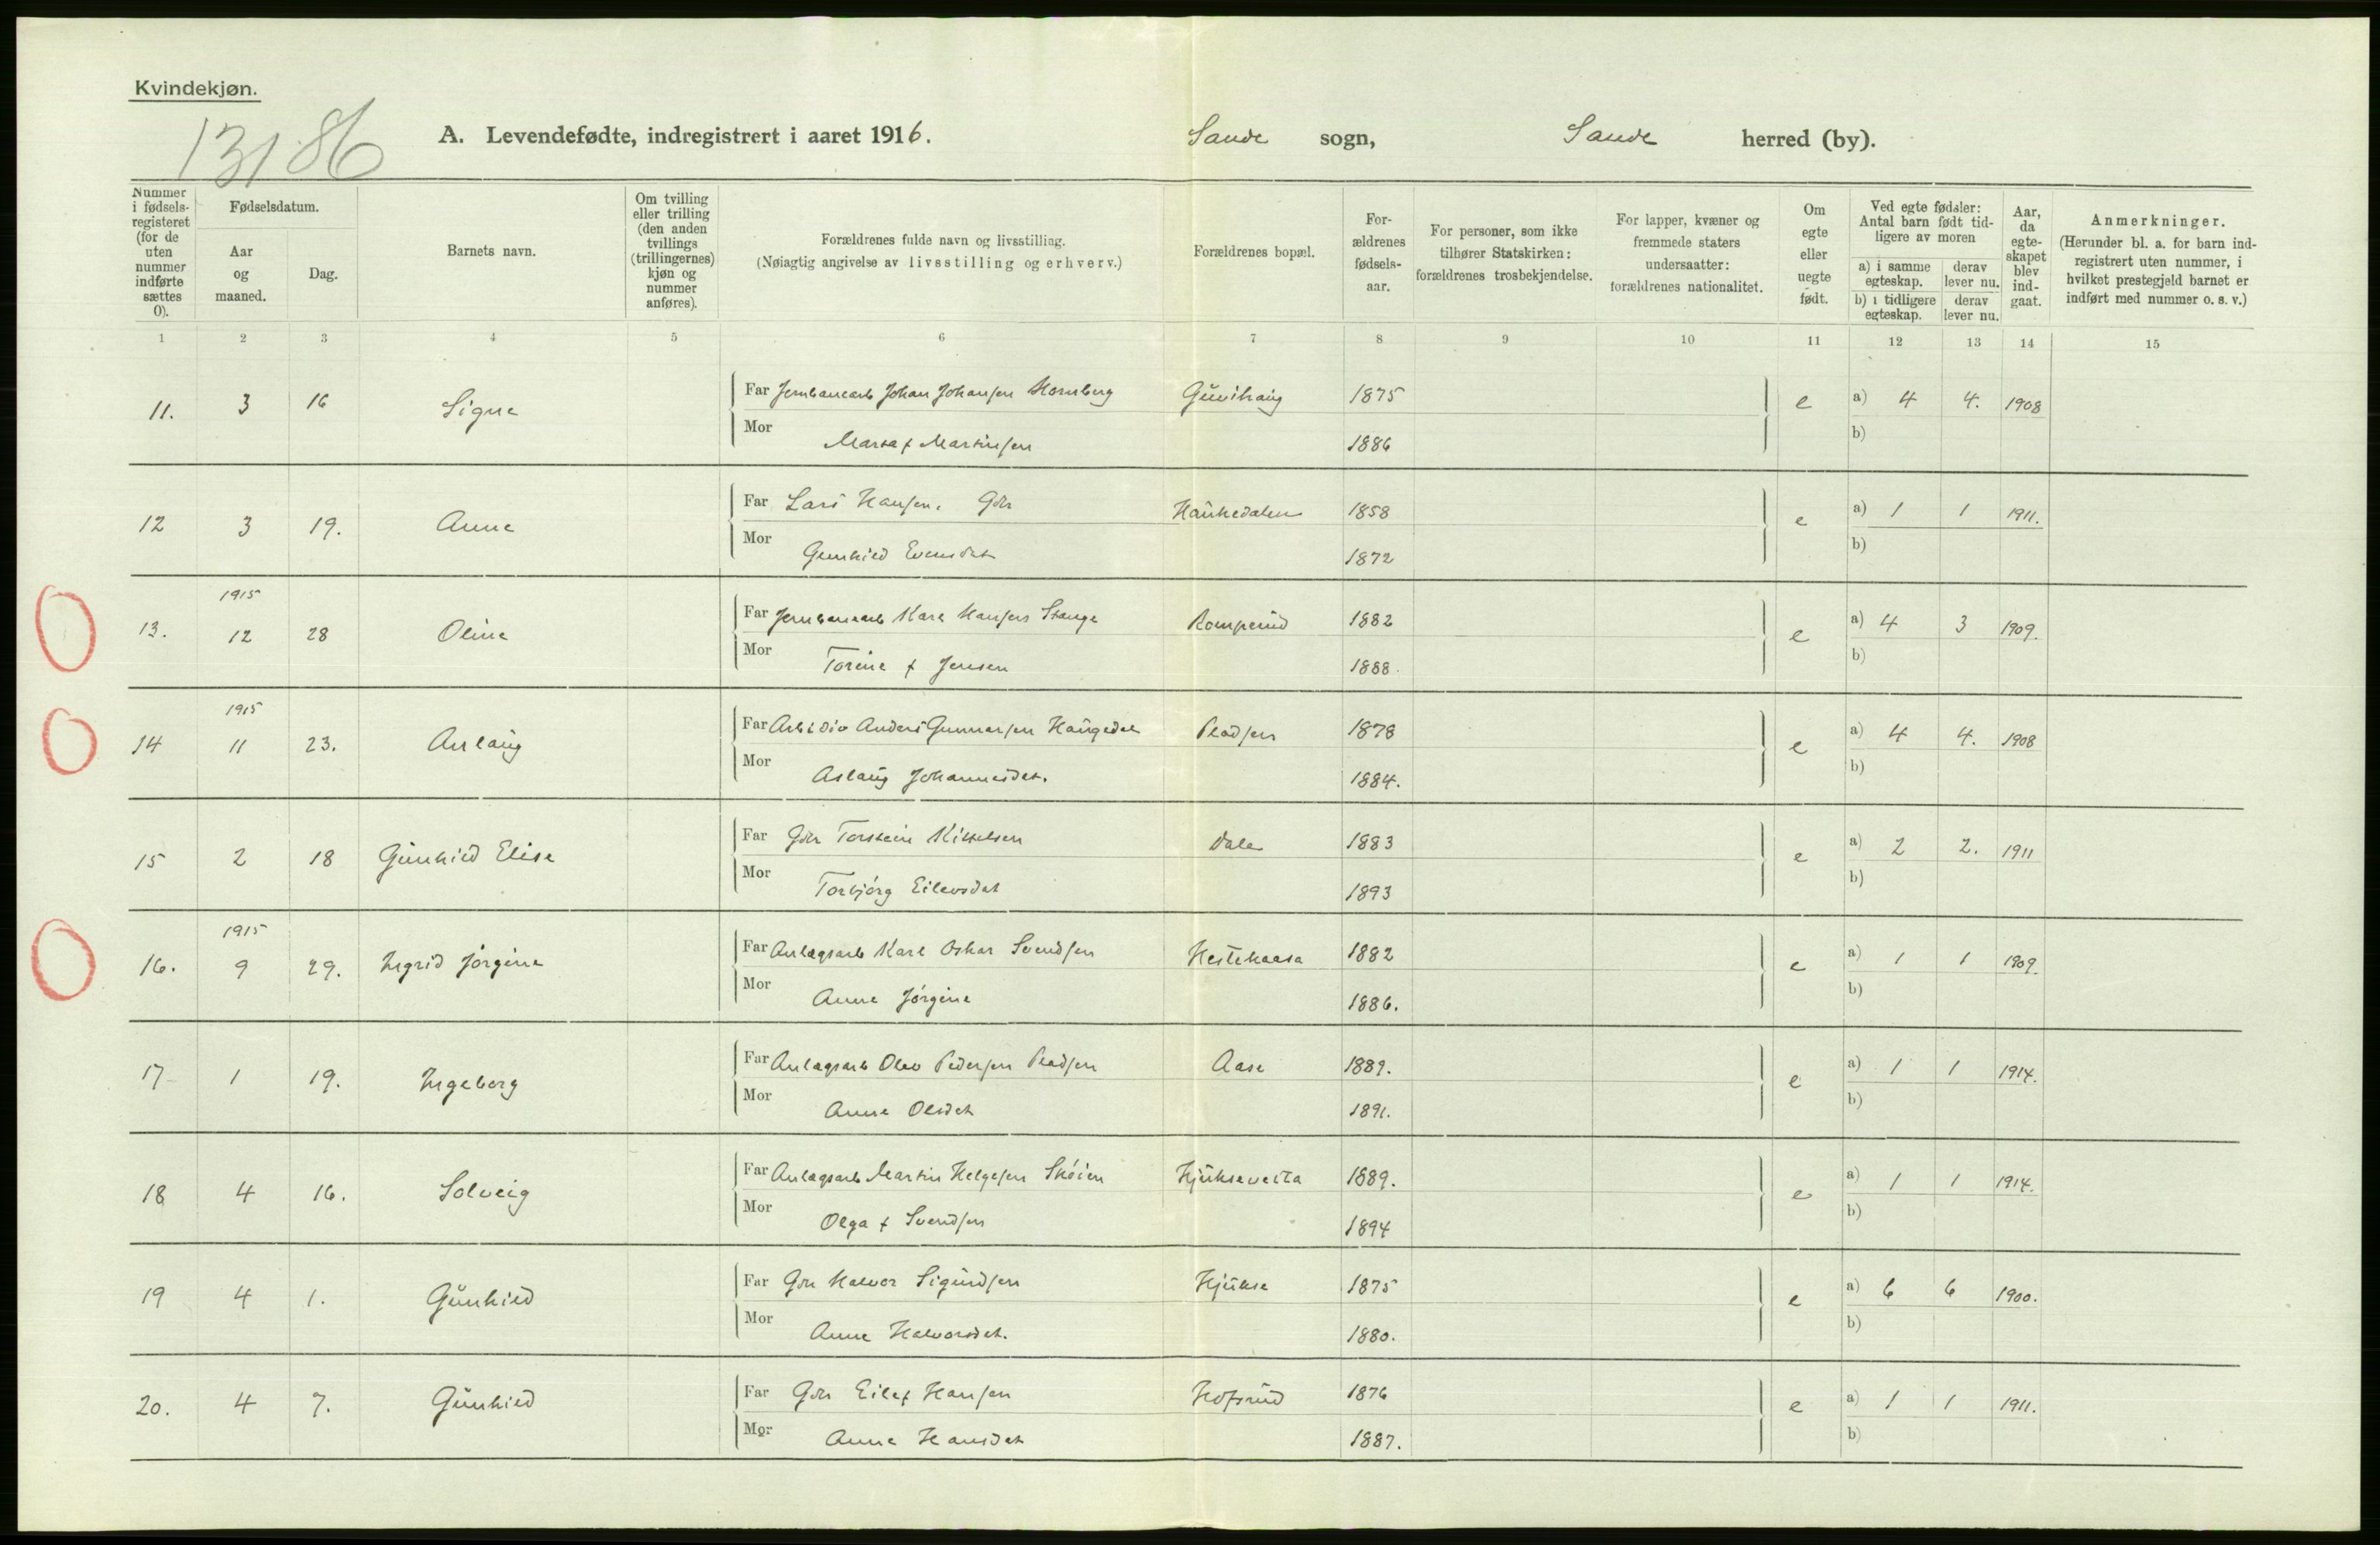 Kvindekjøn.
13186
A. Levendefødte, indregistrert i aaret 1916. Sande sogn, Sande herred (by).
Nummer i fødselsregisteret (for de uten nummer indførte sættes 0).
Fødselsdatum.
Aar og maaned.
Dag.
Barnets navn.
Om tvilling eller trilling (den anden tvillings (trillingernes) kjøn og nummer anføres).
Forældrenes fulde navn og livsstilling.
(Nøiagtig angivelse av livsstilling og erhverv.)
Forældrenes bopæl.
Forældrenes fødselsaar.
For personer, som ikke tilhører Statskirken: forældrenes trosbekjendelse.
For lapper, kvæner og fremmede staters undersaatter: forældrenes nationalitet.
Om egte eller uegte født.
Ved egte fødsler: Antal barn født tidligere av moren
a) i samme egteskap. derav lever nu.
b) i tidligere egteskap. derav lever nu.
Aar, da egteskapet blev indgaat.
Anmerkninger.
(Herunder bl. a. for barn indregistrert uten nummer, i hvilket prestegjeld barnet er indført med nummer o. s. v.)
1 2 3 4 5 6 7 8 9 10 11 12 13 14 15
11. 3 16 Signe Far Jernbanearb Johan Johansen Hornberg 1875 e a) 4 4. 1908
Mor Marta f Martinsen 1886 b)
12 3 19. Anne Far Lars Hansen, Gbr Haukedalen 1858 e a) 1 1 1911.
Mor Gunhild Evensdat 1872 b)
1915
13. 12 28 Oline Far Jernbanearb Karl Hansen Stange Romperud 1882 e a) 4 3 1909.
Mor Torine f Jensen 1888. b)
1915
14 11 23. Aslaug Far Anders Gunnarsen Haugedal 1878 e a) 4 4. 1908
Mor Aslaug Johannesdat. 1884. b)
15 2 18 Gunhild Elise Far Gbr Torstein Kittelsen Dale 1883 e a) 2 2. 1911
Mor Torbjörg Eilevsdat 1893 b)
1915
16. 9 29. Ingrid Jörgine Far Anlægsarb Karl Oskar Svendsen Hestekaasa 1882 e a) 1 1 1909.
Mor Anne Jörgine 1886. b)
17 1 19. Ingeborg Far Anlægsarb Olav Pedersen Pladsen Aase 1889. e a) 1 1 1914.
Mor Anne Olsdat 1891. b)
18 4 16. Solveig Far Anlægsarb Martin Helgesen Sköien Hjuksevelta 1889. e a) 1 1 1914.
Mor Olga f Svendsen 1894 b)
19 4 1. Gunhild Far Gbr Halvor Sigurdsen Hjukse 1875 e a) 6 6 1900.
Mor Anne Halvorsdat. 1880. b)
20. 4 7. Gunhild Far Gbr Eilef Hansen Hofsrud 1876 e a) 1 1 1911.
Mor Anne Hansdat 1887. b)